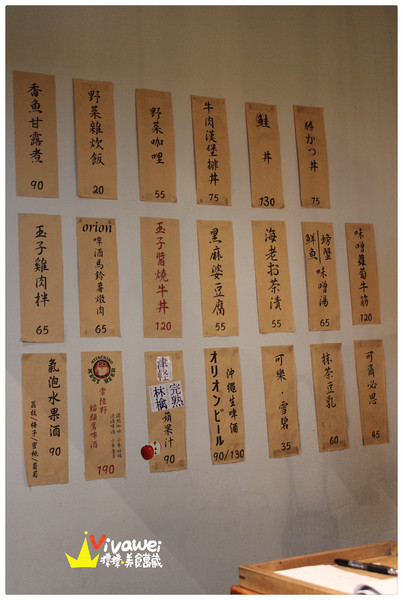 香魚甘露煮
90
野菜雜炊飯
20
野菜咖哩
55
牛肉漢堡排丼
75
鮭丼
130
豚かつ丼
75
玉子雞肉拌
65
orion
啤酒馬鈴薯燉肉
65
玉子醬燒牛丼
120
黑麻婆豆腐
55
海老お茶漬
55
螃蟹
鮮魚
味噌湯
65
味噌蘿蔔牛筋
120
氣泡水果酒
90
荔枝/梅子/蜜桃/葡萄
常陸野
貓頭鷹啤酒
190
津軽
完熟
林檎
蘋果汁
90
沖繩生啤酒
オリオンビール
90/130
可樂·雪碧
35
抹茶豆乳
60
可爾必思
65
Vivawei
美食館藏